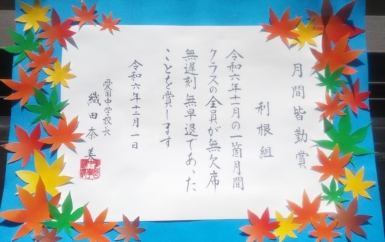 月間皆勤賞
利根組
令和六年十一月の一箇月間
クラスの全員が無欠席
無遅刻無早退であった
ことを賞します
令和六年十二月一日
愛国中学校長
織田奈美